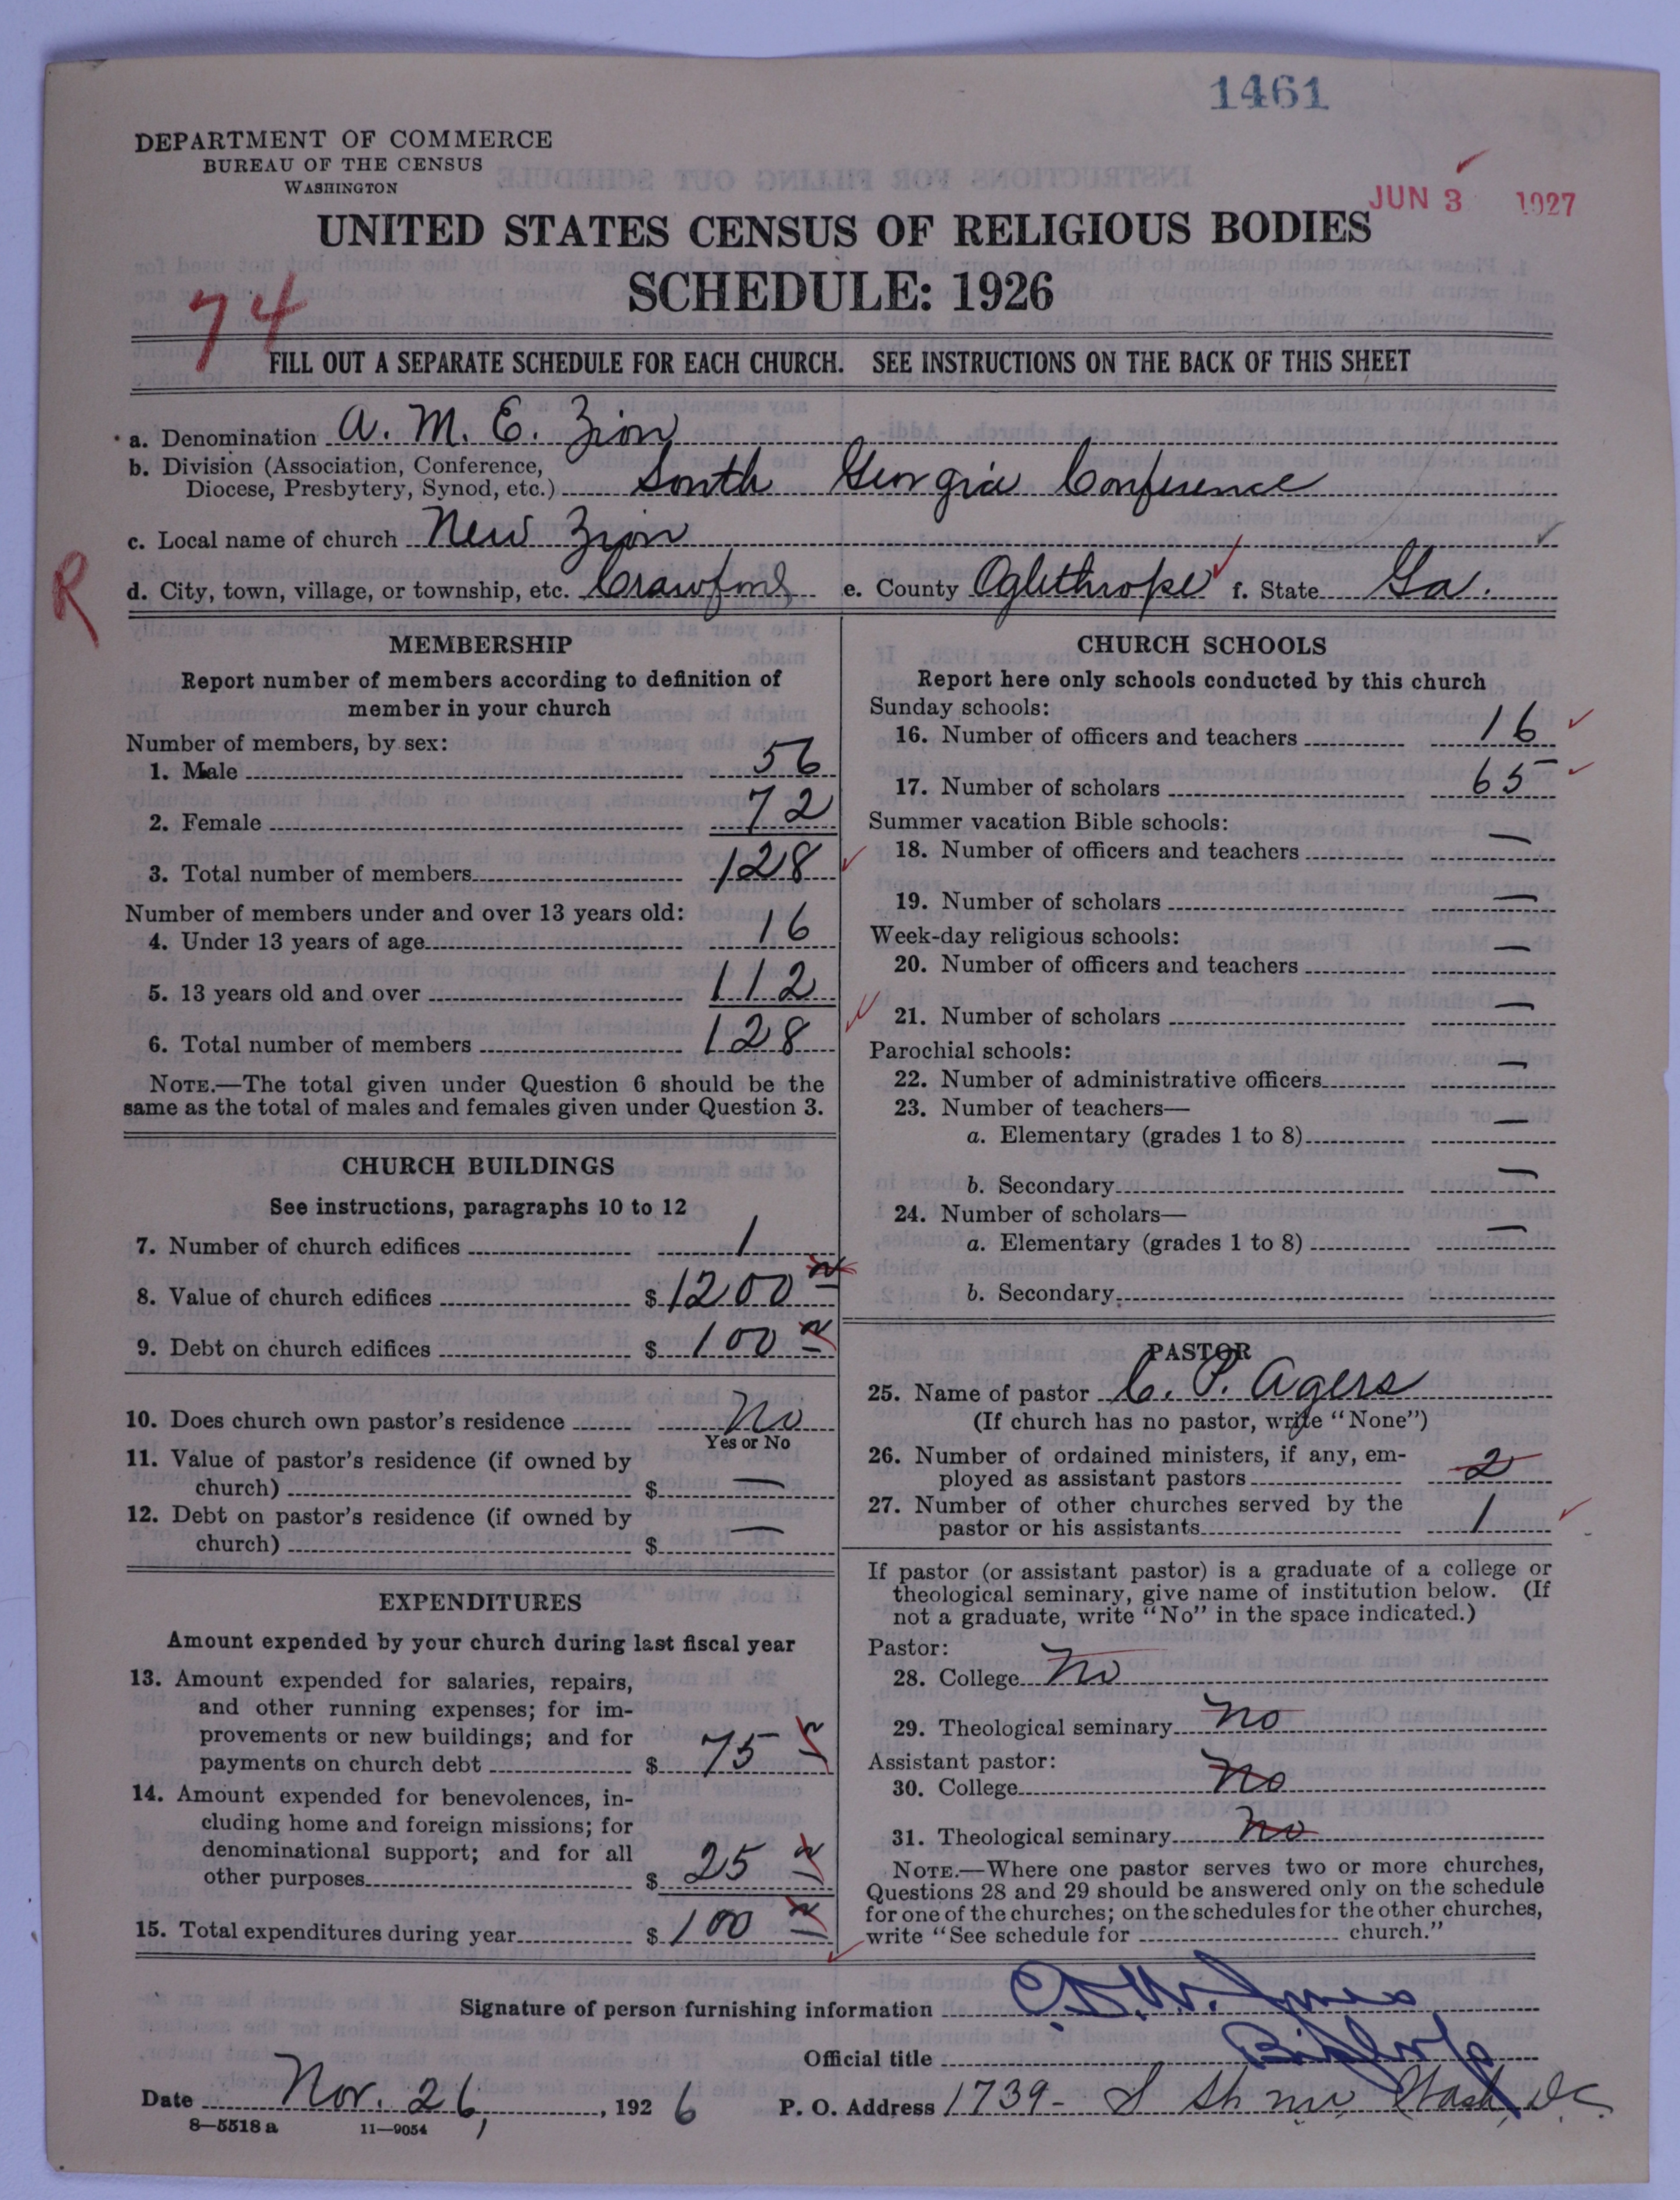 1461
DEPARTMENT OF COMMERCE
BUREAU OF THE CENSUS
WASHINGTON
JUN 3 1927
UNITED STATES CENSUS OF RELIGIOUS BODIES
SCHEDULE: 1926
74
FILL OUT A SEPARATE SCHEDULE FOR EACH CHURCH. SEE INSTRUCTIONS ON THE BACK OF THIS SHEET
a. Denomination A. M. E. Zion
b. Division (Association, Conference,
Diocese, Presbytery, Synod, etc.) South Georgia Conference
c. Local name of church New Zion
R
d. City, town, village, or township, etc. Crawford e. County Oglethrope f. State Ga.
MEMBERSHIP
Report number of members according to definition of
member in your church
Number of members, by sex:
1. Male 56
2. Female 72
3. Total number of members 128
Number of members under and over 13 years old:
4. Under 13 years of age 16
5. 13 years old and over 112
6. Total number of members 128
NOTE.—The total given under Question 6 should be the
same as the total of males and females given under Question 3.
CHURCH BUILDINGS
See instructions, paragraphs 10 to 12
7. Number of church edifices 1
8. Value of church edifices $ 1200
9. Debt on church edifices $ 100
10. Does church own pastor's residence No
Yes or No
11. Value of pastor's residence (if owned by
church) $ —
12. Debt on pastor's residence (if owned by
church) $ —
EXPENDITURES
Amount expended by your church during last fiscal year
13. Amount expended for salaries, repairs,
and other running expenses; for im-
provements or new buildings; and for
payments on church debt $ 75
14. Amount expended for benevolences, in-
cluding home and foreign missions; for
denominational support; and for all
other purposes $ 25
15. Total expenditures during year $ 100
CHURCH SCHOOLS
Report here only schools conducted by this church
Sunday schools:
16. Number of officers and teachers 16
17. Number of scholars 65
Summer vacation Bible schools:
18. Number of officers and teachers —
19. Number of scholars —
Week-day religious schools:
20. Number of officers and teachers —
21. Number of scholars —
Parochial schools:
22. Number of administrative officers —
23. Number of teachers—
a. Elementary (grades 1 to 8) —
b. Secondary —
24. Number of scholars—
a. Elementary (grades 1 to 8) —
b. Secondary
PASTOR
25. Name of pastor C. P. Agers
(If church has no pastor, write "None")
26. Number of ordained ministers, if any, em-
ployed as assistant pastors 2
27. Number of other churches served by the
pastor or his assistants 1
If pastor (or assistant pastor) is a graduate of a college or
theological seminary, give name of institution below. (If
not a graduate, write "No" in the space indicated.)
Pastor:
28. College No
29. Theological seminary No
Assistant pastor:
30. College No
31. Theological seminary No
NOTE.—Where one pastor serves two or more churches,
Questions 28 and 29 should be answered only on the schedule
for one of the churches; on the schedules for the other churches,
write "See schedule for church."
Signature of person furnishing information
Official title Bishop
Date Nov. 26, 1926 P. O. Address 1739- S St. nw Wash, D.C.
8—5518 a 11—9054